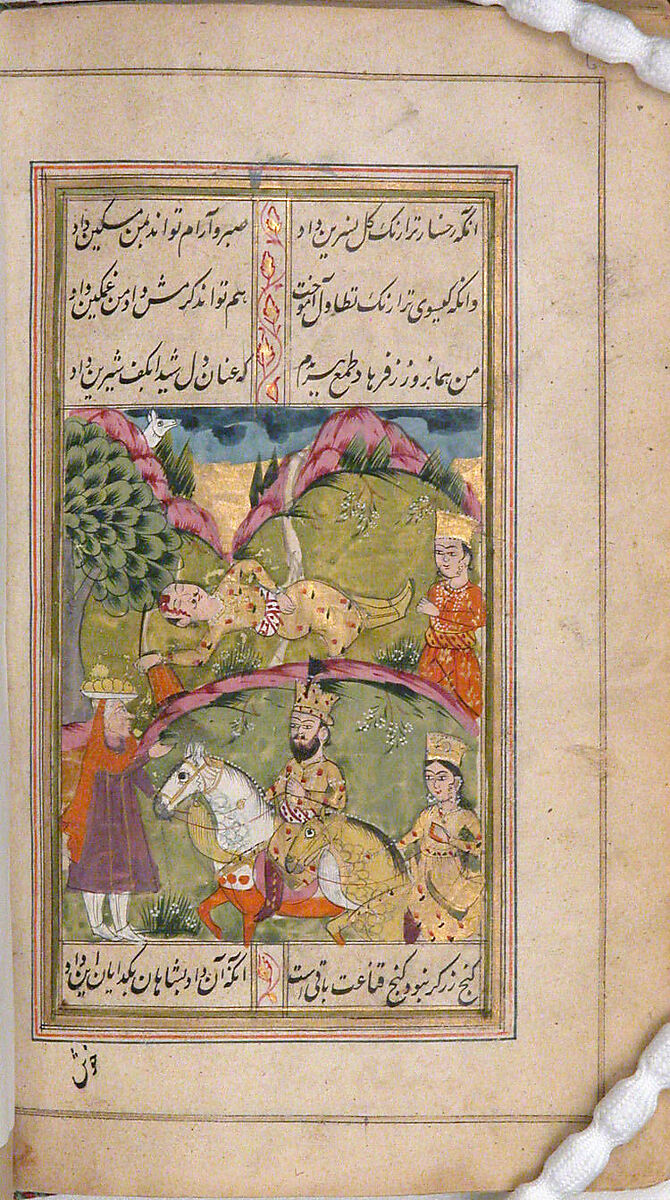 انکه رخسار ترا رنک کل نسرین داد صبر و آرام تواند بمن مسکین داد
وانکه کیسوی ترا رنک تطاول آموخت هم تواند کرمش داد من غمکین داد
من همانروز ز فرهاد طمع ببریدم که عنان دل شیدا بکف شیرین داد
کنج زر کر نبود کنج قناعت باقی است انکه آن داد بشاهان بکدایان این داد
خوش